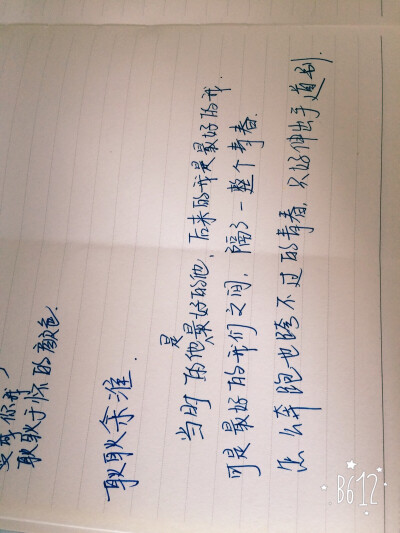 你我
耿耿于怀的颜色.
耿耿余淮.
当时的他是最好的他、后来的我是最好的我.
可是最好的我们之间,隔了一整个青春.
怎么奔跑也跨不过的青春,只好伸出手道别.
B612